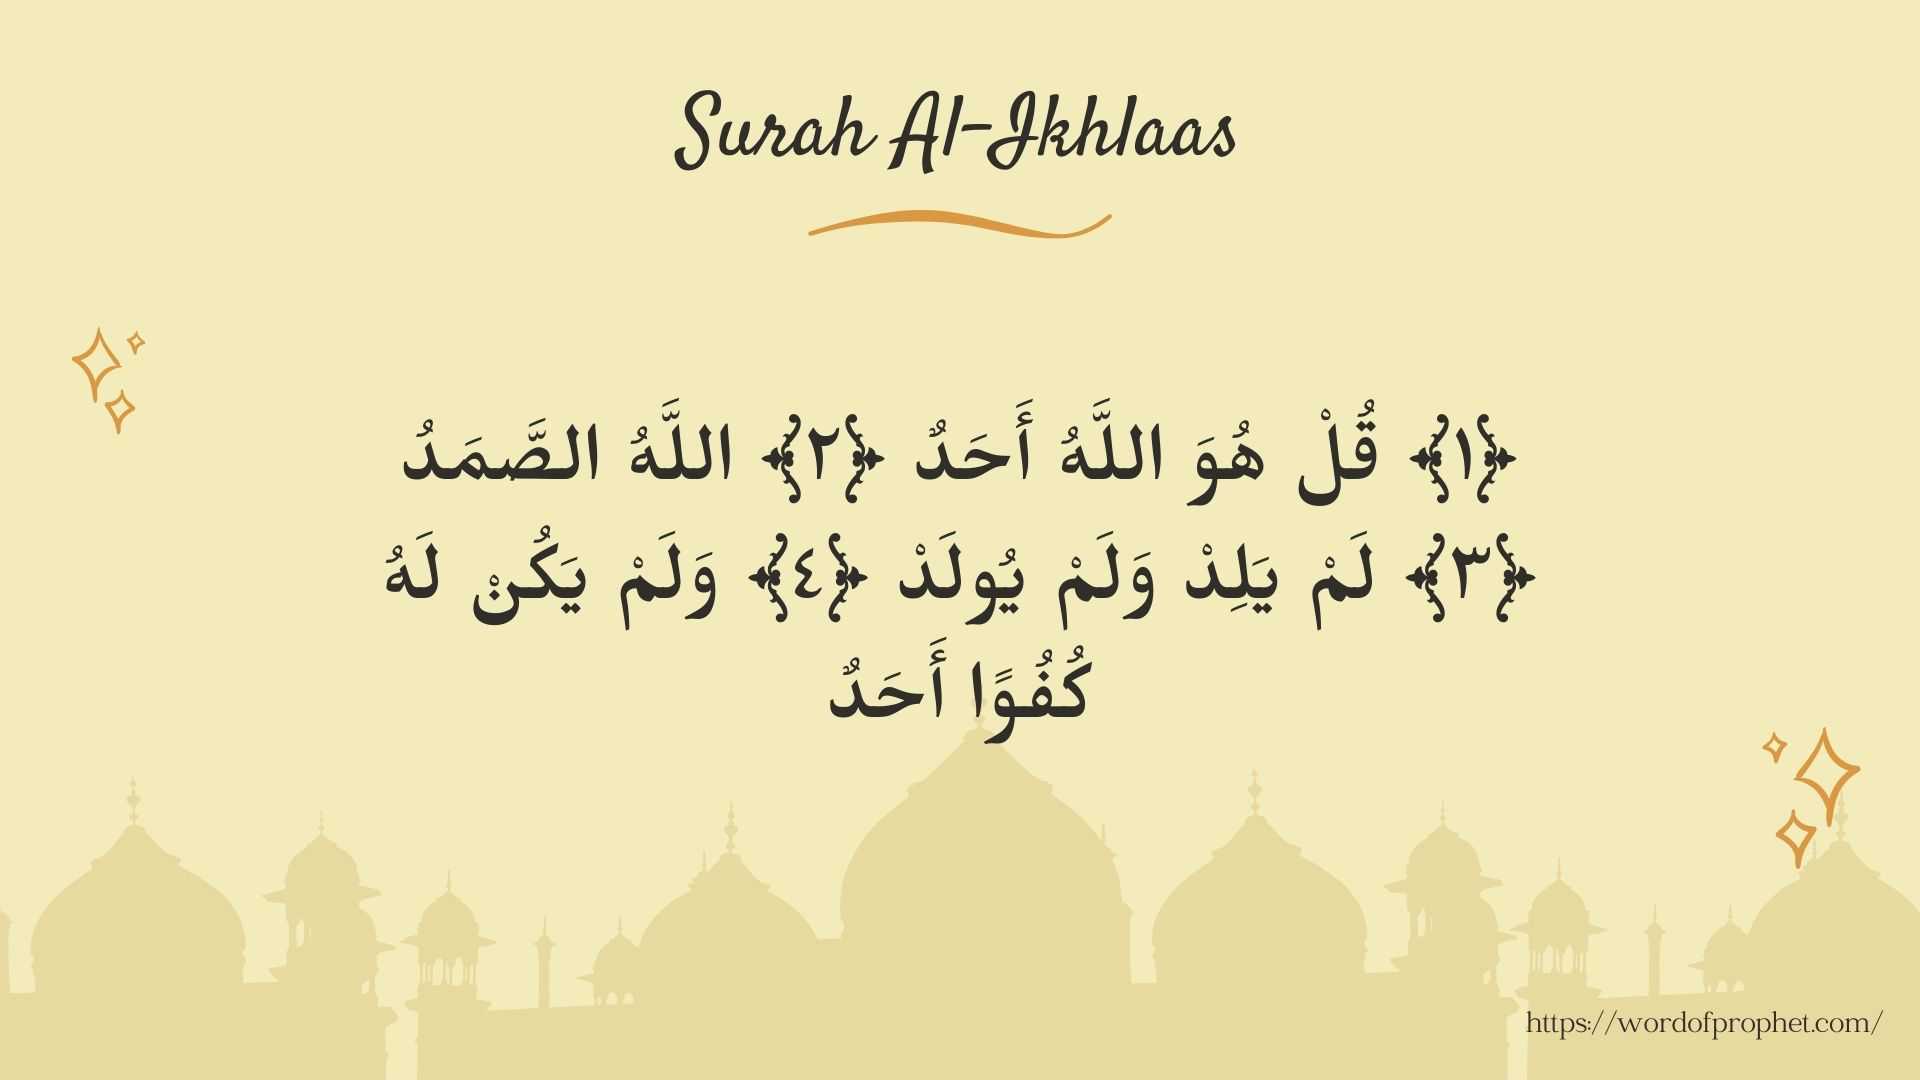 Surah Al-Ikhlaas
﴿١﴾ قُلْ هُوَ اللَّهُ أَحَدٌ ﴿٢﴾ اللَّهُ الصَّمَدُ
﴿٣﴾ لَمْ يَلِدْ وَلَمْ يُولَدْ ﴿٤﴾ وَلَمْ يَكُنْ لَهُ
كُفُوًا أَحَدٌ
https://wordofprophet.com/